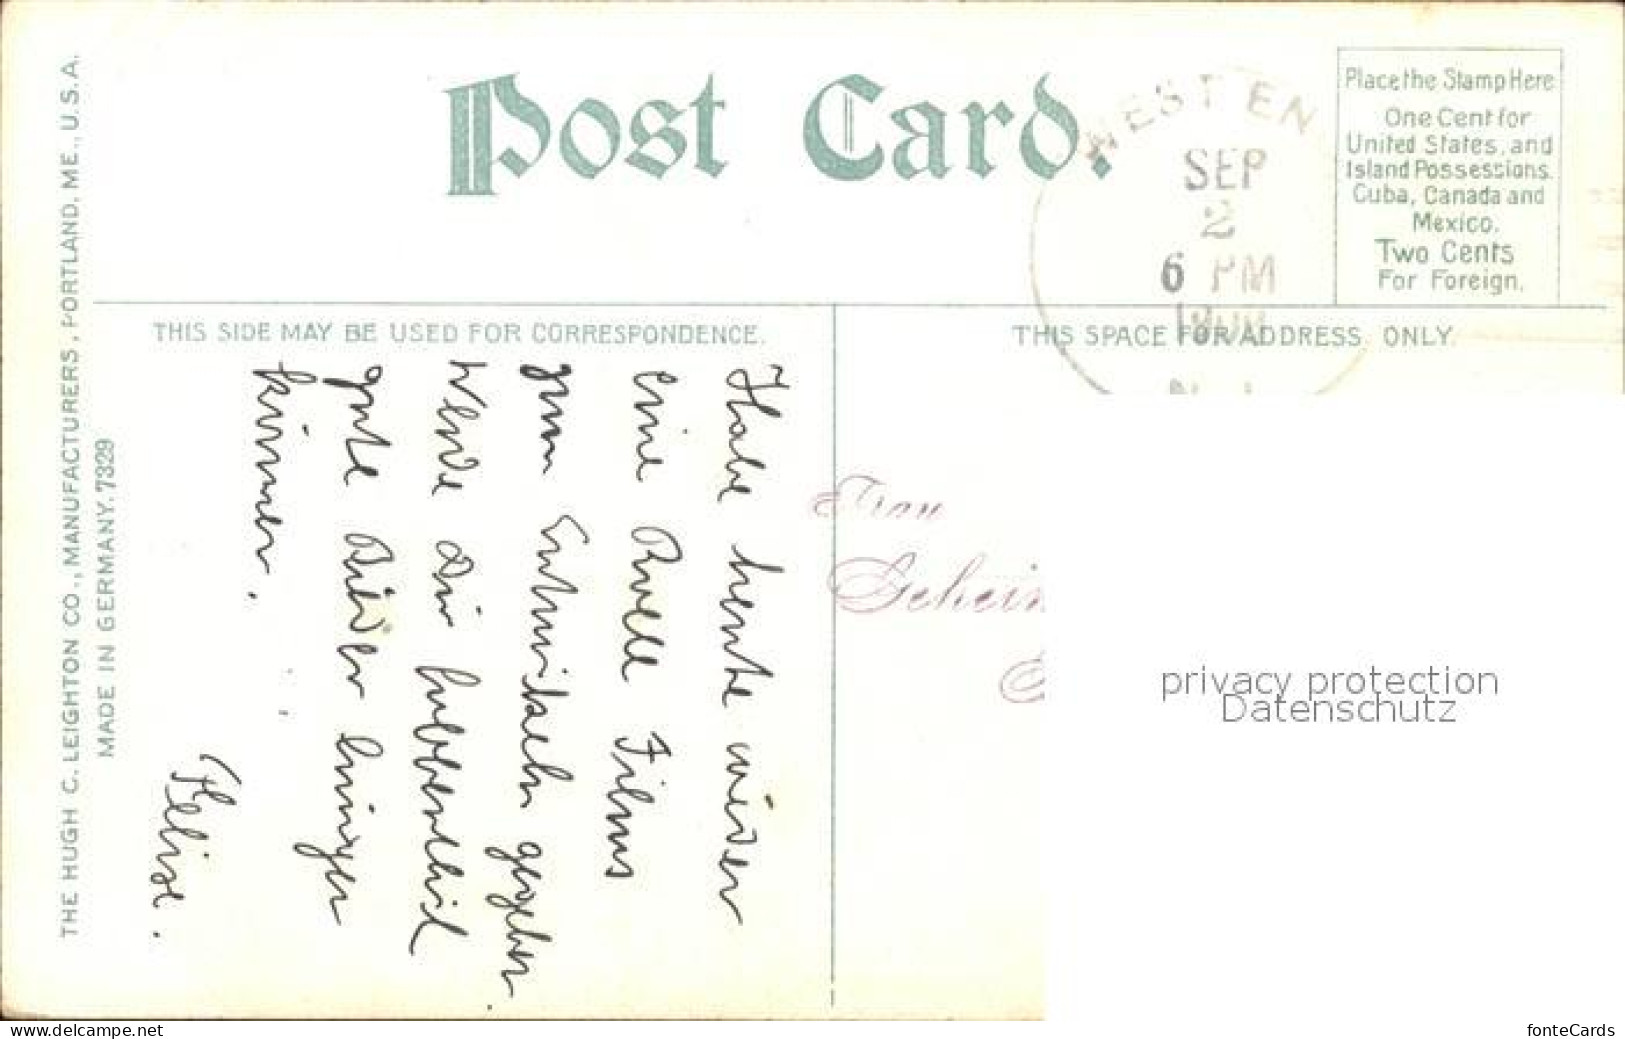 Post Card.
WEST EN
SEP
2
6 PM
1908
N.J.
Place the Stamp Here
One Cent for
United States, and
Island Possessions.
Cuba, Canada and
Mexico.
Two Cents
For Foreign.
THIS SIDE MAY BE USED FOR CORRESPONDENCE.
THIS SPACE FOR ADDRESS ONLY.
THE HUGH C. LEIGHTON CO., MANUFACTURERS, PORTLAND, ME., U.S.A.
MADE IN GERMANY. 7329
Habe heute wieder
eine Rolle Films
zum Entwickeln gegeben
Werde Dir hoffentlich
gute Bilder bringen
können.
Frau
Geheim
privacy protection
Datenschutz
www.delcampe.net
fonteCards